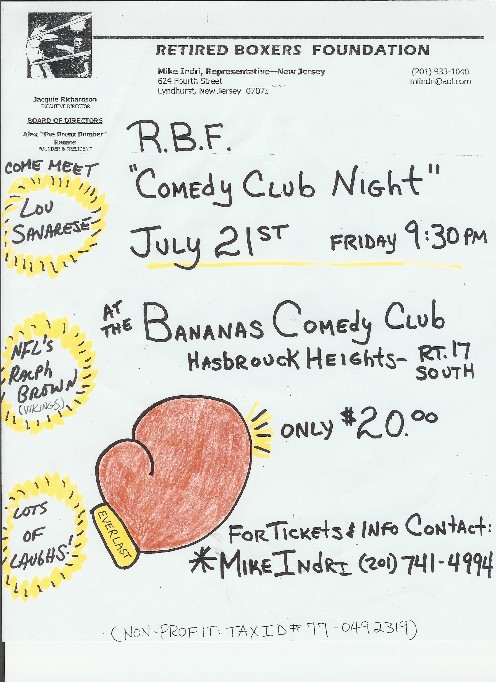 RETIRED BOXERS FOUNDATION
Mike Indri, Representative—New Jersey
624 Fourth Street
Lyndhurst, New Jersey 07071
(201) 933-1040
Jacquie Richardson
EXECUTIVE DIRECTOR
BOARD OF DIRECTORS
Alex "The Bronx Bomber" Ramos
FOUNDER & PRESIDENT
R.B.F.
"COMEDY CLUB NIGHT"
JULY 21ST FRIDAY 9:30 PM
COME MEET
LOU
SAVARESE
AT
THE BANANAS COMEDY CLUB
HASBROUCK HEIGHTS- RT. 17
SOUTH
NFL'S
RALPH
BROWN
(VIKINGS)
ONLY $20.00
EVERLAST
LOTS
OF
LAUGHS!
FOR TICKETS & INFO CONTACT:
*MIKE INDRI (201) 741-4994
(NON-PROFIT: TAX ID# 77-0492319)